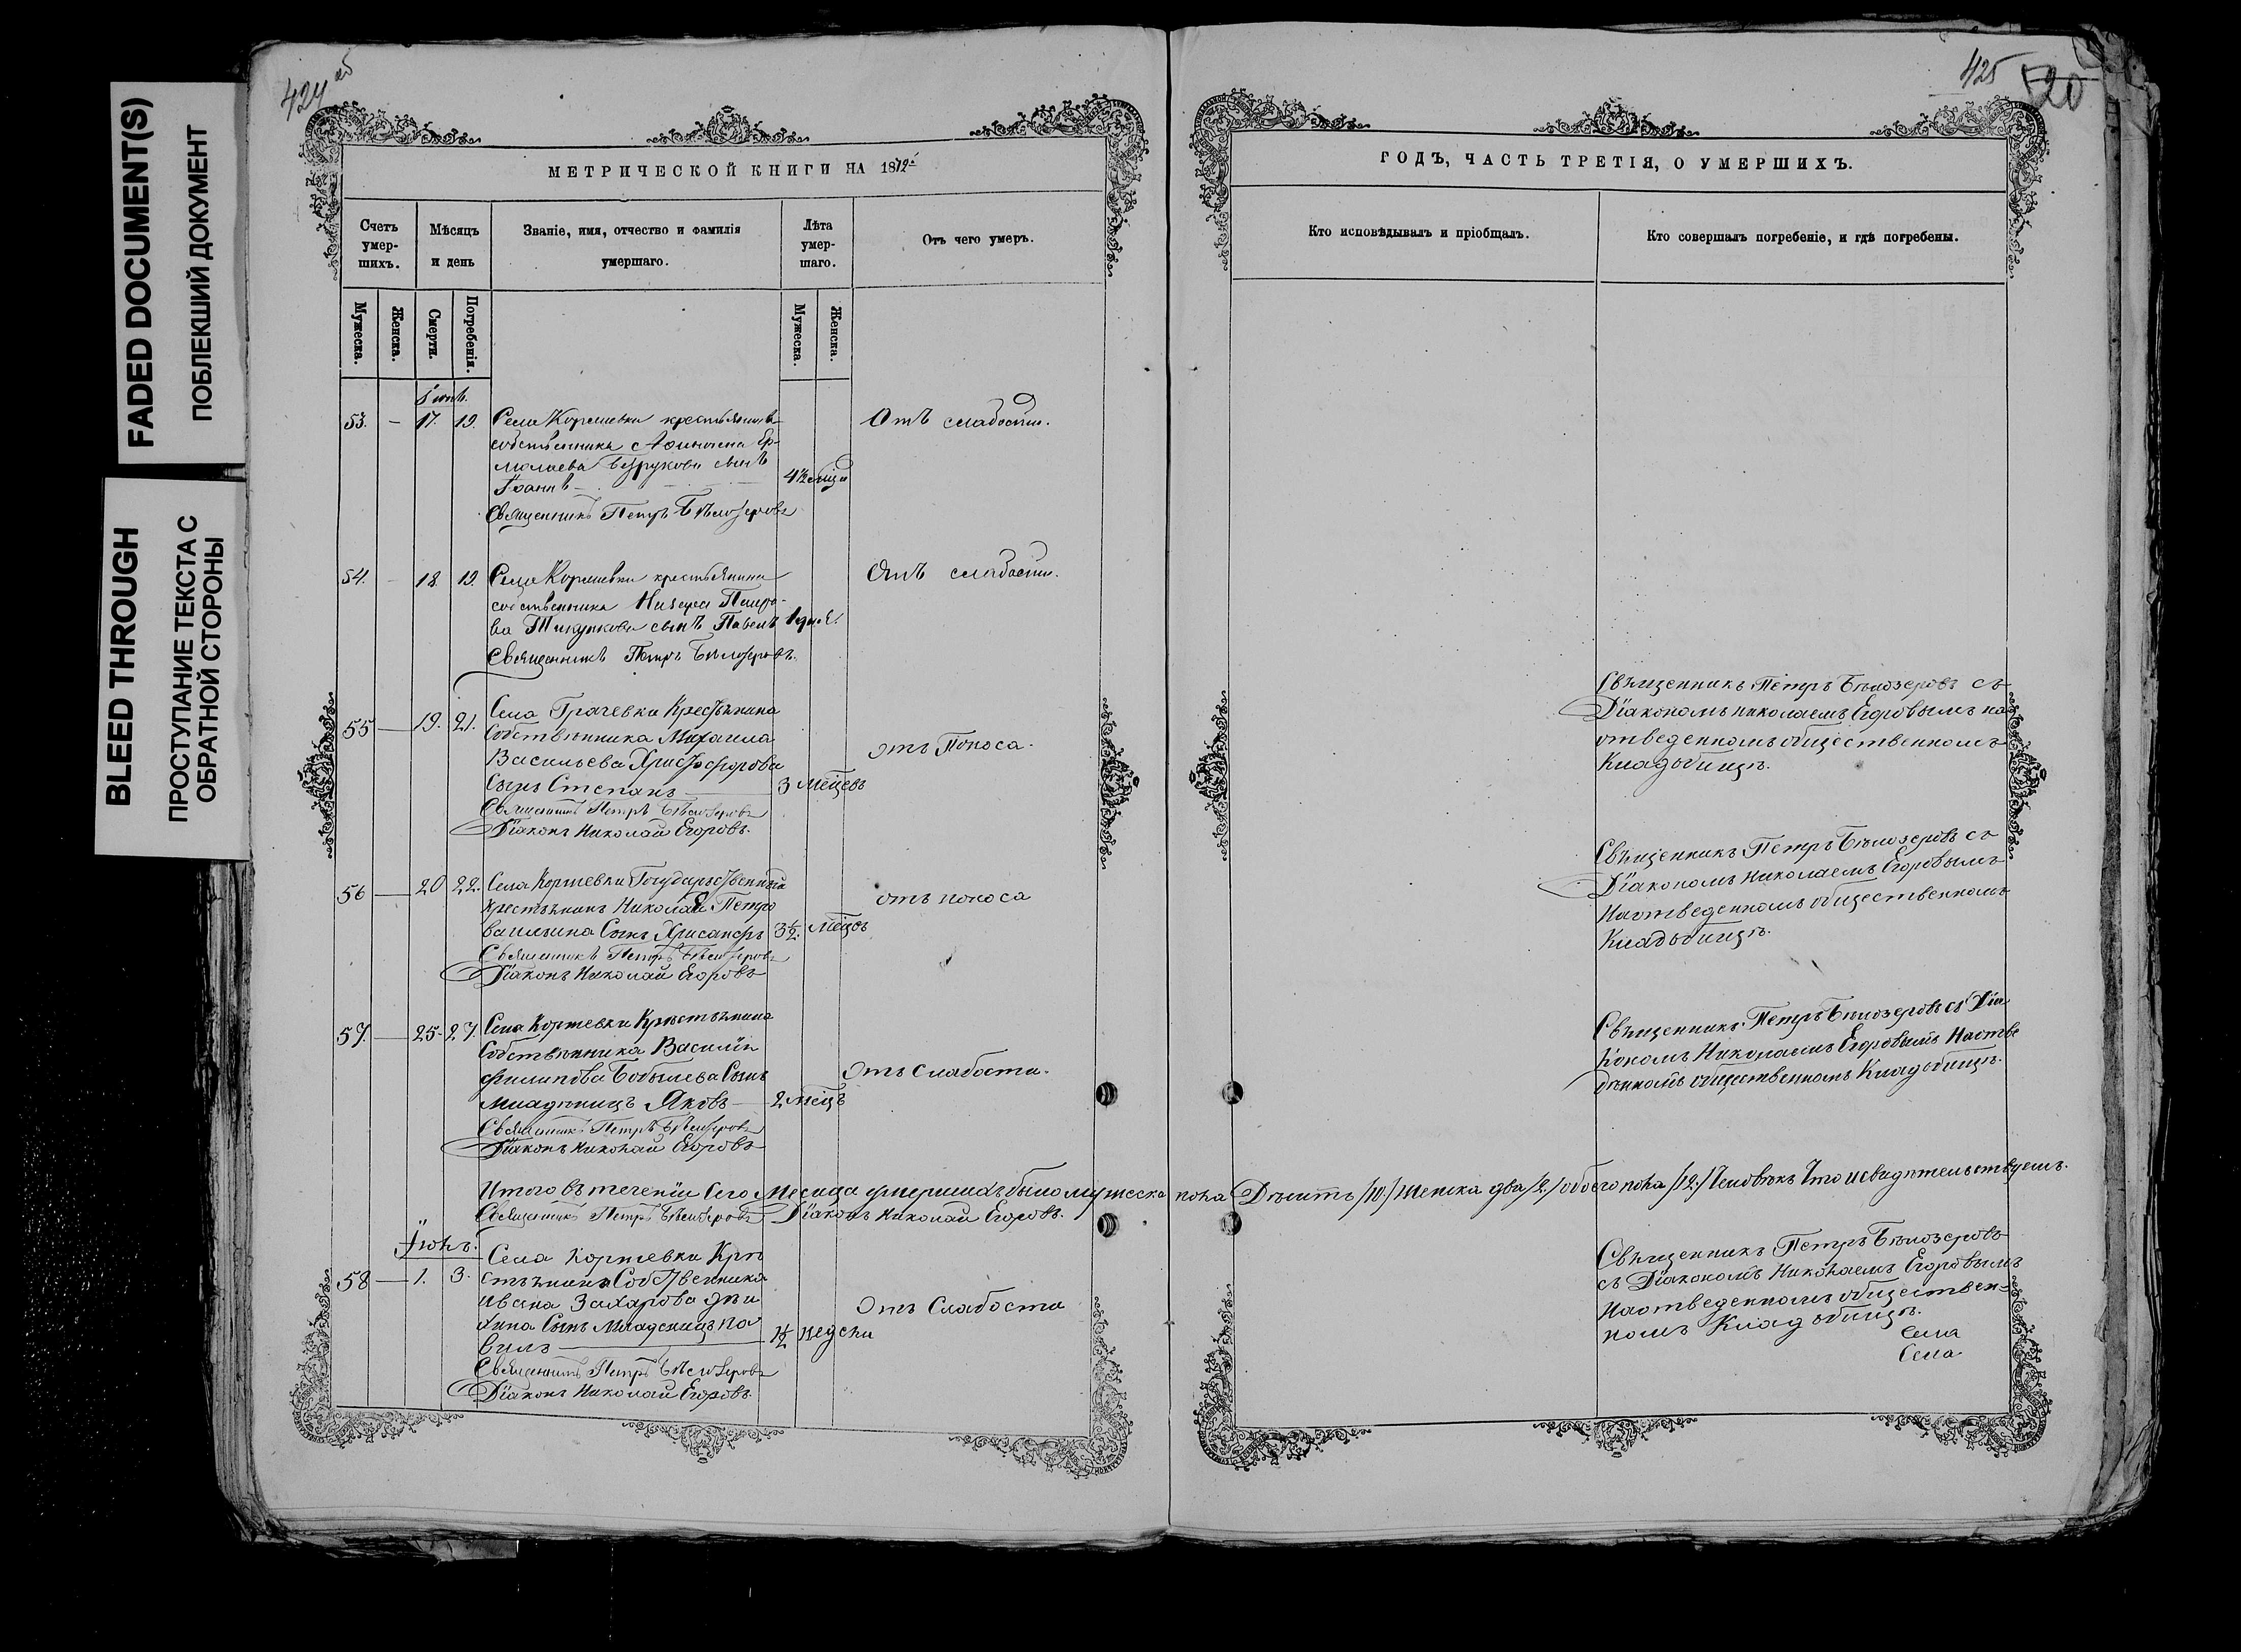 FADED DOCUMENT(S)
ПОБЛЕКШИЙ ДОКУМЕНТ
BLEED THROUGH
ПРОСТУПАНИЕ ТЕКСТА С
ОБРАТНОЙ СТОРОНЫ
424 об
МЕТРИЧЕСКОЙ КНИГИ НА 1872
Счетъ умер-шихъ.
Мѣсяцъ и день
Званіе, имя, отчество и фамилія умершаго.
Лѣта умер-шаго.
Отъ чего умеръ.
Мужеска.
Женска.
Смерти.
Погребенія.
Мужеска.
Женска.
53. – 17. 19. Села Коржевки крестьянина
собственника
сынъ
Іоаннъ 4 1/2
Отъ слабости.
Священникъ Петръ Бѣлозеровъ
54. – 18. 19. Села Коржевки крестьянина
собственника Назара Петро-
ва сынъ Павелъ 1 дня.
Отъ слабости.
Священникъ Петръ Бѣлозеровъ.
55 – 19. 21. Села Грачевки Крестьянина
Собственника Михаила
Васильева Христофорова
Сынъ Степанъ 3 мѣцевъ
отъ Поноса.
Священникъ Петръ Бѣлозеровъ
Діаконъ Николай Егоровъ.
56 – 20 22. Села Коржевки Государственнаго
крестьянинъ Николай Петро
ва ильина Сынъ Хрисанфъ 3 1/2. мѣцевъ
отъ поноса
Священникъ Петръ Бѣлозеровъ
Діаконъ Николай Егоровъ
57. – 25- 27. Села Коржевки Крестьянина
Собственника Василія
Филипова Бобылева Сынъ
младѣницъ Яковъ 2 мѣцъ
Отъ Слабости.
Священникъ Петръ Бѣлозеровъ
Діаконъ Николай Егоровъ
Итого въ теченіи Сего Месица умершихъ было мужеска пола Десить /10./ Женска два /2./ обоего пола /12./ Человѣкъ Что и свидѣтельствуемъ.
Священникъ Петръ Бѣлозеровъ Діаконъ Николай Егоровъ.
Іюль.
58 – 1. 3. Села Коржевки Кре
стьянинъ Собственника
Ивана Захарова
Сынъ Младеницъ Па
вилъ 1/2 недели
Отъ Слабости
Священникъ Петръ Бѣлозеровъ
Діаконъ Николай Егоровъ.
425
520
ГОДЪ, ЧАСТЬ ТРЕТІЯ, О УМЕРШИХЪ.
Кто исповѣдывалъ и пріобщалъ.
Кто совершалъ погребеніе, и гдѣ погребены.
Свѣщенникъ Петръ Бѣлозеровъ съ
Діакономъ Николаемъ Егоровымъ на
отведенномъ общественномъ
Кладбищѣ.
Свѣщенникъ Петръ Бѣлозеровъ съ
Діакономъ Николаемъ Егоровымъ
На отведенномъ общественномъ
Кладбищѣ.
Свѣщенникъ Петръ Бѣлозеровъ съ Діа
кономъ Николаемъ Егоровымъ На отве
дѣнномъ общественномъ Кладбищѣ.
Свѣщенникъ Петръ Бѣлозеровъ
съ Діакономъ Николаемъ Егоровымъ
На отведенномъ обществен-
номъ Кладбищѣ.
Села
Села